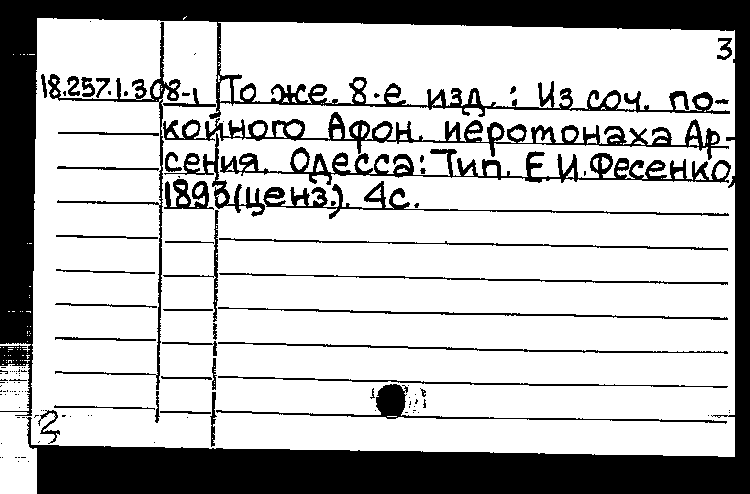 3.
18.257.1.308-1 То же. 8-е изд. : Из соч. по-
койного Афон. иеромонаха Ар-
сения. Одесса: Тип. Е.И.Фесенко,
1893(ценз.). 4с.
3